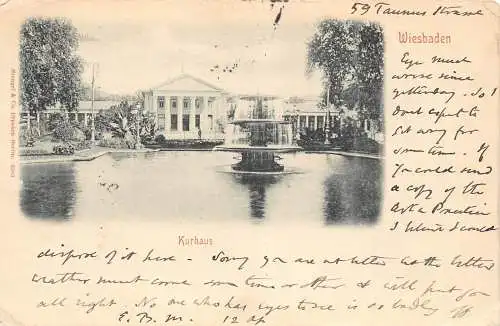 59 Taunus Strasse
Wiesbaden
Eye much
worse since
yesterday. So I
don't expect to
get away for
some time. If
you could send
a copy of the
Art & Practice
I believe I could
dispose of it here - Sorry you are not better as the better
weather must come some time or other it will put you
all right. No one who has eyes to see is so badly off
E. B. M. 12 Ap
Kurhaus
Stengel & Co. Dresden Berlin